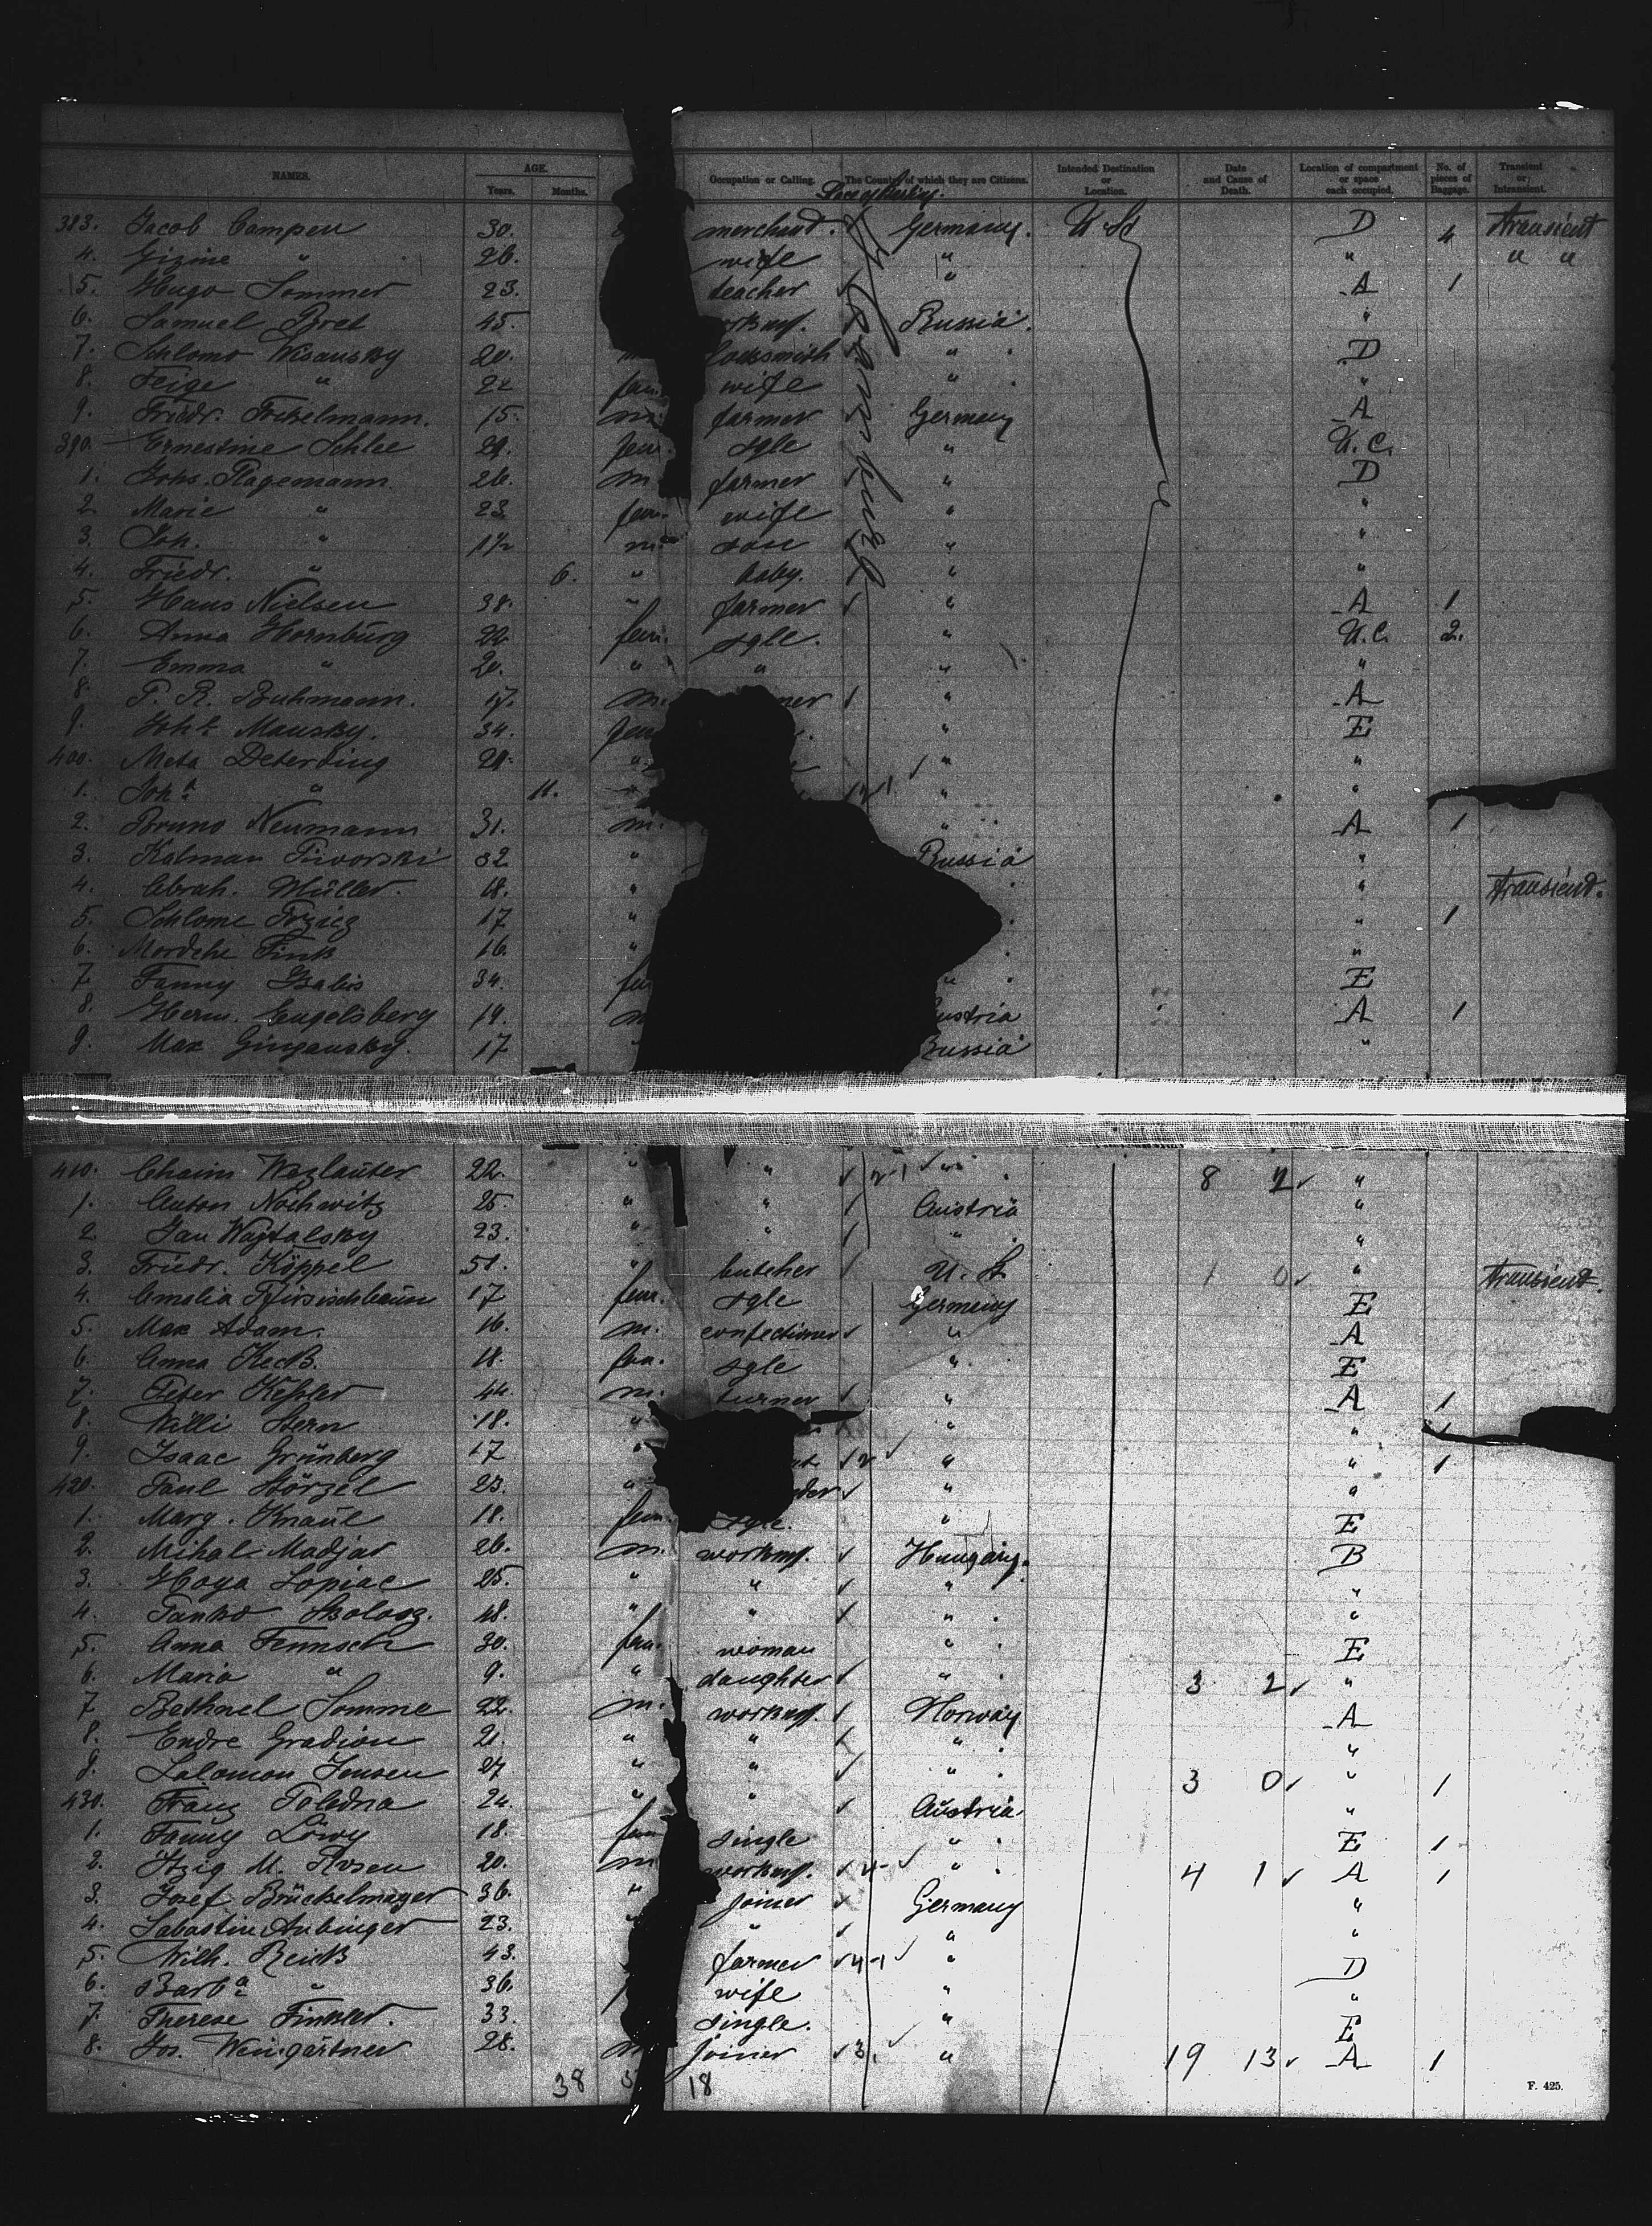 NAMES. AGE. Years. Months. Occupation or Calling. The Country of which they are Citizens. Intended Destination or Location. Date and Cause of Death. Location of compartment or space each occupied. No. of pieces of Baggage. Transient or Intransient.
383. Jacob Campen 30. merchand. Germany. U. St. D 4 transient
4. Gizine " 26. wife " " " "
5. Hugo Sommer 23. teacher " A 1
6. Samuel Bret 45. Russia. "
7. Schlomo Wisansky 20. locksmith " D
8. Feige " 22 fem. wife " "
9. Friedr. Fickelmann. 15. m. farmer Germany A
390. Ernestine Schlee 29. fem. sgle " U. C.
1. Johs. Plagemann 26. m. farmer " D
2. Marie " 23. fem. wife " "
3. Joh. " 1½ m. son " "
4. Friedr. " 6. " baby. " "
5. Hans Nielsen 38. " farmer " A 1
6. Anna Hornburg 22 fem. sgle. " U. C. 2.
7. Emma " 20. " " " "
8. F. R. Buhmann. 17. m. " A
9. Joh^e Mansky. 34. fem " E
400. Meta Deterding 21. " " "
1. Joh^a " 11. " "
2. Bruno Neumann 31. m. " A 1
3. Kalman Piworski 32 " Russia "
4. Abrah. Müller. 18. " " transient.
5. Schlome 17 " " 1
6. Mordche Fink 16. " "
7. Fanny 34. fem " E
8. Herm. Engelsberg 14. m Austria A 1
9. Max Ginzansky. 17 " Russia "
410. Chaim 22. " " 2-1 " 8 2 "
1. Anton Nochwitz 25. " " Austria "
2. Jan Wojtalsky 23. " " " "
3. Friedr. Köppel 51. " butcher U. St. 1 0 " transient.
4. Amalia Pfirsischbaum 17 fem. sgle Germany E
5. Max Adam. 16. m. confectioner " A
6. Anna Keck. 18. fem. sgle " E
7. Peter Keßler 44 m. turner " A 1
8. Willi Stern 18. " " "
9. Isaac Grünberg 17 " 2 " " 1
420. Paul Störzel 23. " " "
1. Marg. Knaul 18. fem. sgle. " E
2. Mihal Madjar 26. m. workmg. Hungary. B
3. Hoya Lopiac 25. " " " "
4. Janko 18. " " " "
5. Anna Fennsch 30. fem. woman " E
6. Maria " 9. " daughter " 3 2 "
7. Bethuel Somme 22. m. workmg. Norway A
8. Endre Gradion 21. " " " "
9. Salomon Jensen 27 " " " 3 0 " 1
430. Franz Poledna 24. " " Austria "
1. Fanny Löwy 18. fem single " E 1
2. Itzig M. Rosen 20. m workmg. 4- " 4 1 A 1
3. Josef Brückelmayer 36. " joiner Germany "
4. Sabastin Aubinger 23. " " " "
5. Wilh. Reick 43. farmer 4-1 " D
6. Barb^a " 36. wife " "
7. Therese Finkler. 33. single. " E
8. Jos. Weingärtner 28. m joiner 3. " 19 13 A 1
38 18
F. 425.